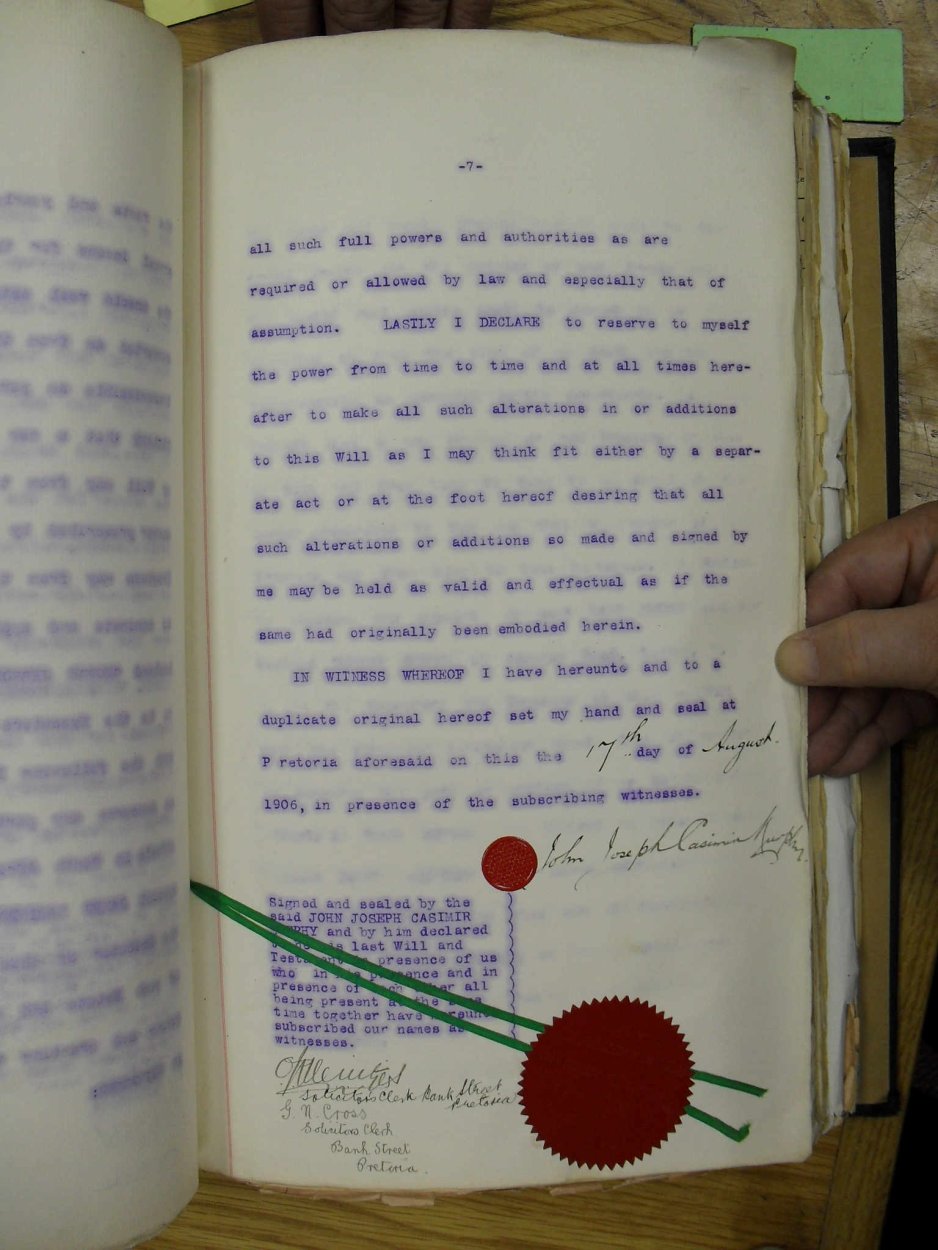 -7-
all such full powers and authorities as are
required or allowed by law and especially that of
assumption. LASTLY I DECLARE to reserve to myself
the power from time to time and at all times here-
after to make all such alterations in or additions
to this Will as I may think fit either by a separ-
ate act or at the foot hereof desiring that all
such alterations or additions so made and signed by
me may be held as valid and effectual as if the
same had originally been embodied herein.
IN WITNESS WHEREOF I have hereunto and to a
duplicate original hereof set my hand and seal at
Pretoria aforesaid on this the 17th day of August.
1906, in presence of the subscribing witnesses.
John Joseph Casimir Murphy
Signed and sealed by the
said JOHN JOSEPH CASIMIR
MURPHY and by him declared
to be his last Will and
Testament in presence of us
who in his presence and in
presence of each other all
being present at the same
time together have hereunto
subscribed our names as
witnesses.
Solicitors Clerk Bank Street
Pretoria
G. N. Cross
Solicitors Clerk
Bank Street
Pretoria.